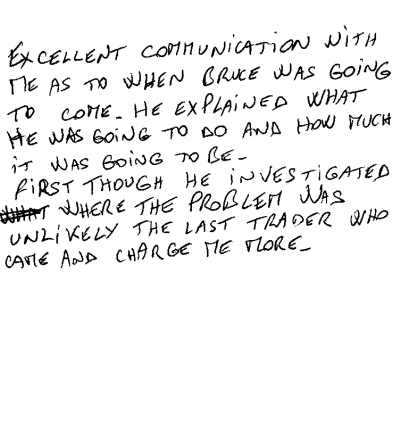 EXCELLENT COMMUNICATION WITH
ME AS TO WHEN BRUCE WAS GOING
TO COME_ HE EXPLAINED WHAT
HE WAS GOING TO DO AND HOW MUCH
iT WAS GOING TO BE_
FiRST THOUGH HE iNVESTiGATED
WHERE THE PROBLEM WAS
UNLiKELY THE LAST TRADER WHO
CAME AND CHARGE ME MORE_